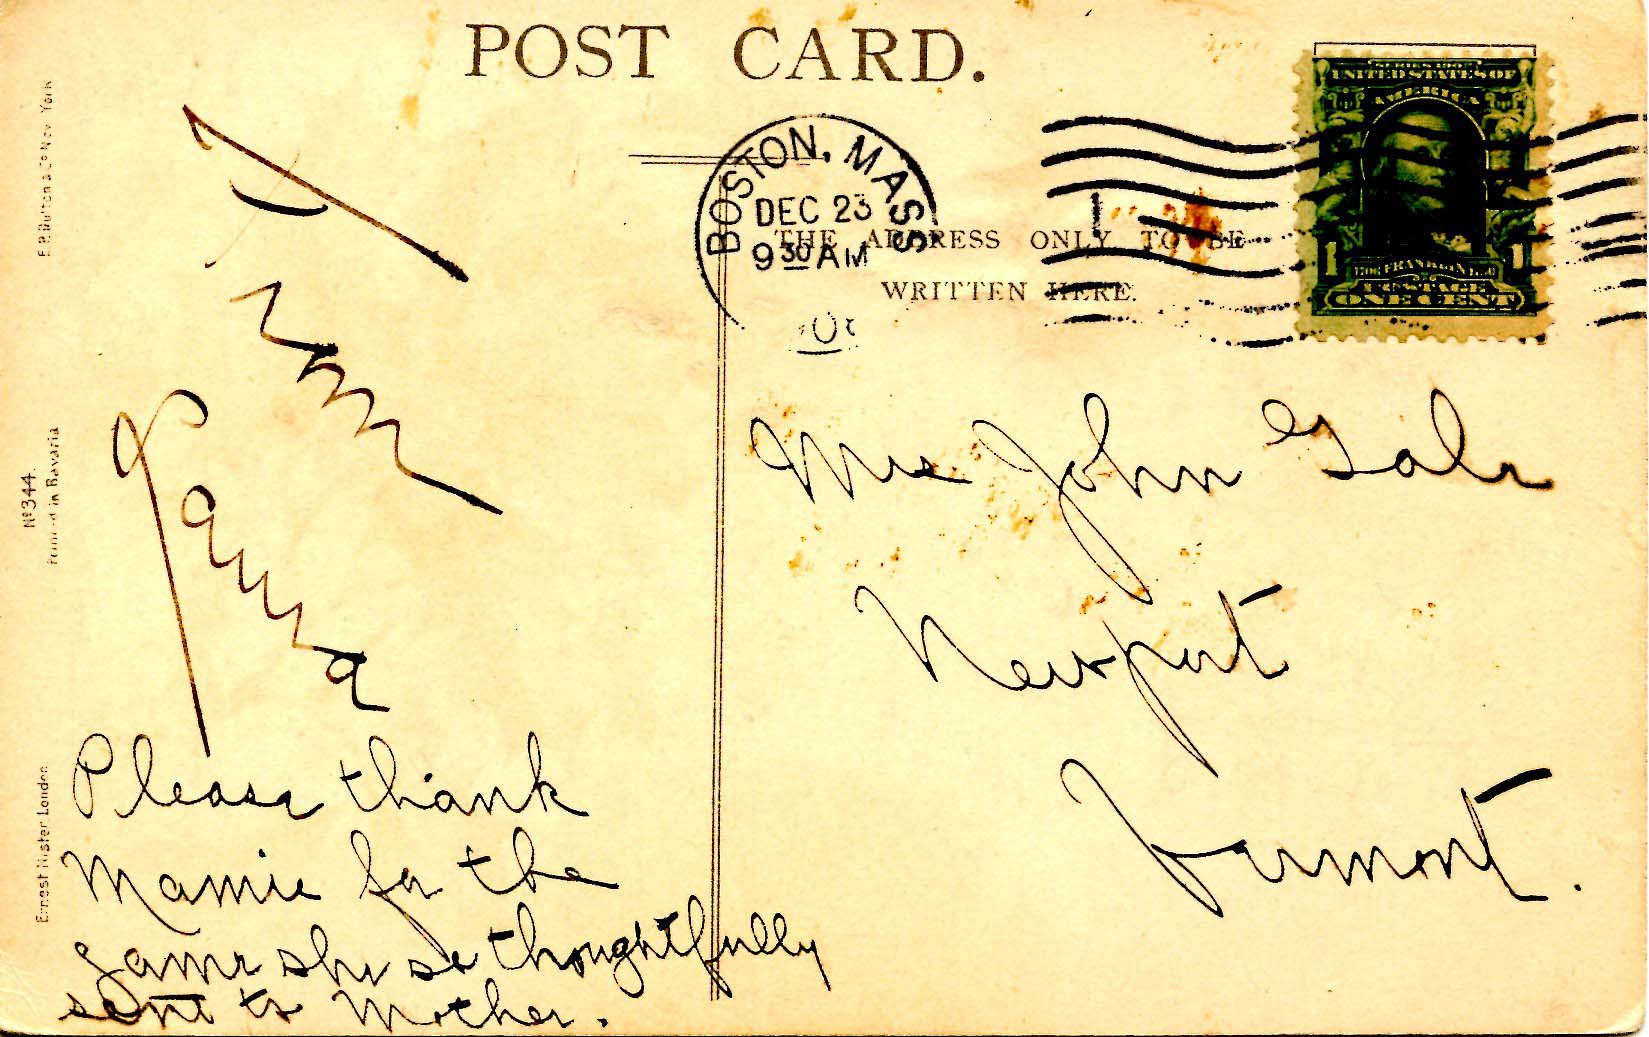 POST CARD.
SERIES 1902
UNITED STATES OF
AMERICA
1 1
FRANKLIN
POSTAGE
ONE CENT
BOSTON, MASS
DEC 23
9 30 AM
1
THE ADDRESS ONLY TO BE
WRITTEN HERE.
E.P. Dutton & Co New York
No 344.
Printed in Bavaria
Ernest Nister London
From
Please thank
Mamie for the
game she so thoughtfully
sent to Mother.
Mrs John Gale
Newport
Vermont.